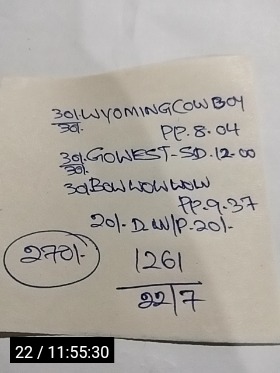 30/- WYOMING COW BOY
30/-
PP. 8.04
30/- GOWEST - SD. 12.00
30/-
30/- BOW WOW WOW
PP. 9.37
20/- D. W/P. 20/-
270/-
1261
22/7
22 / 11:55:30